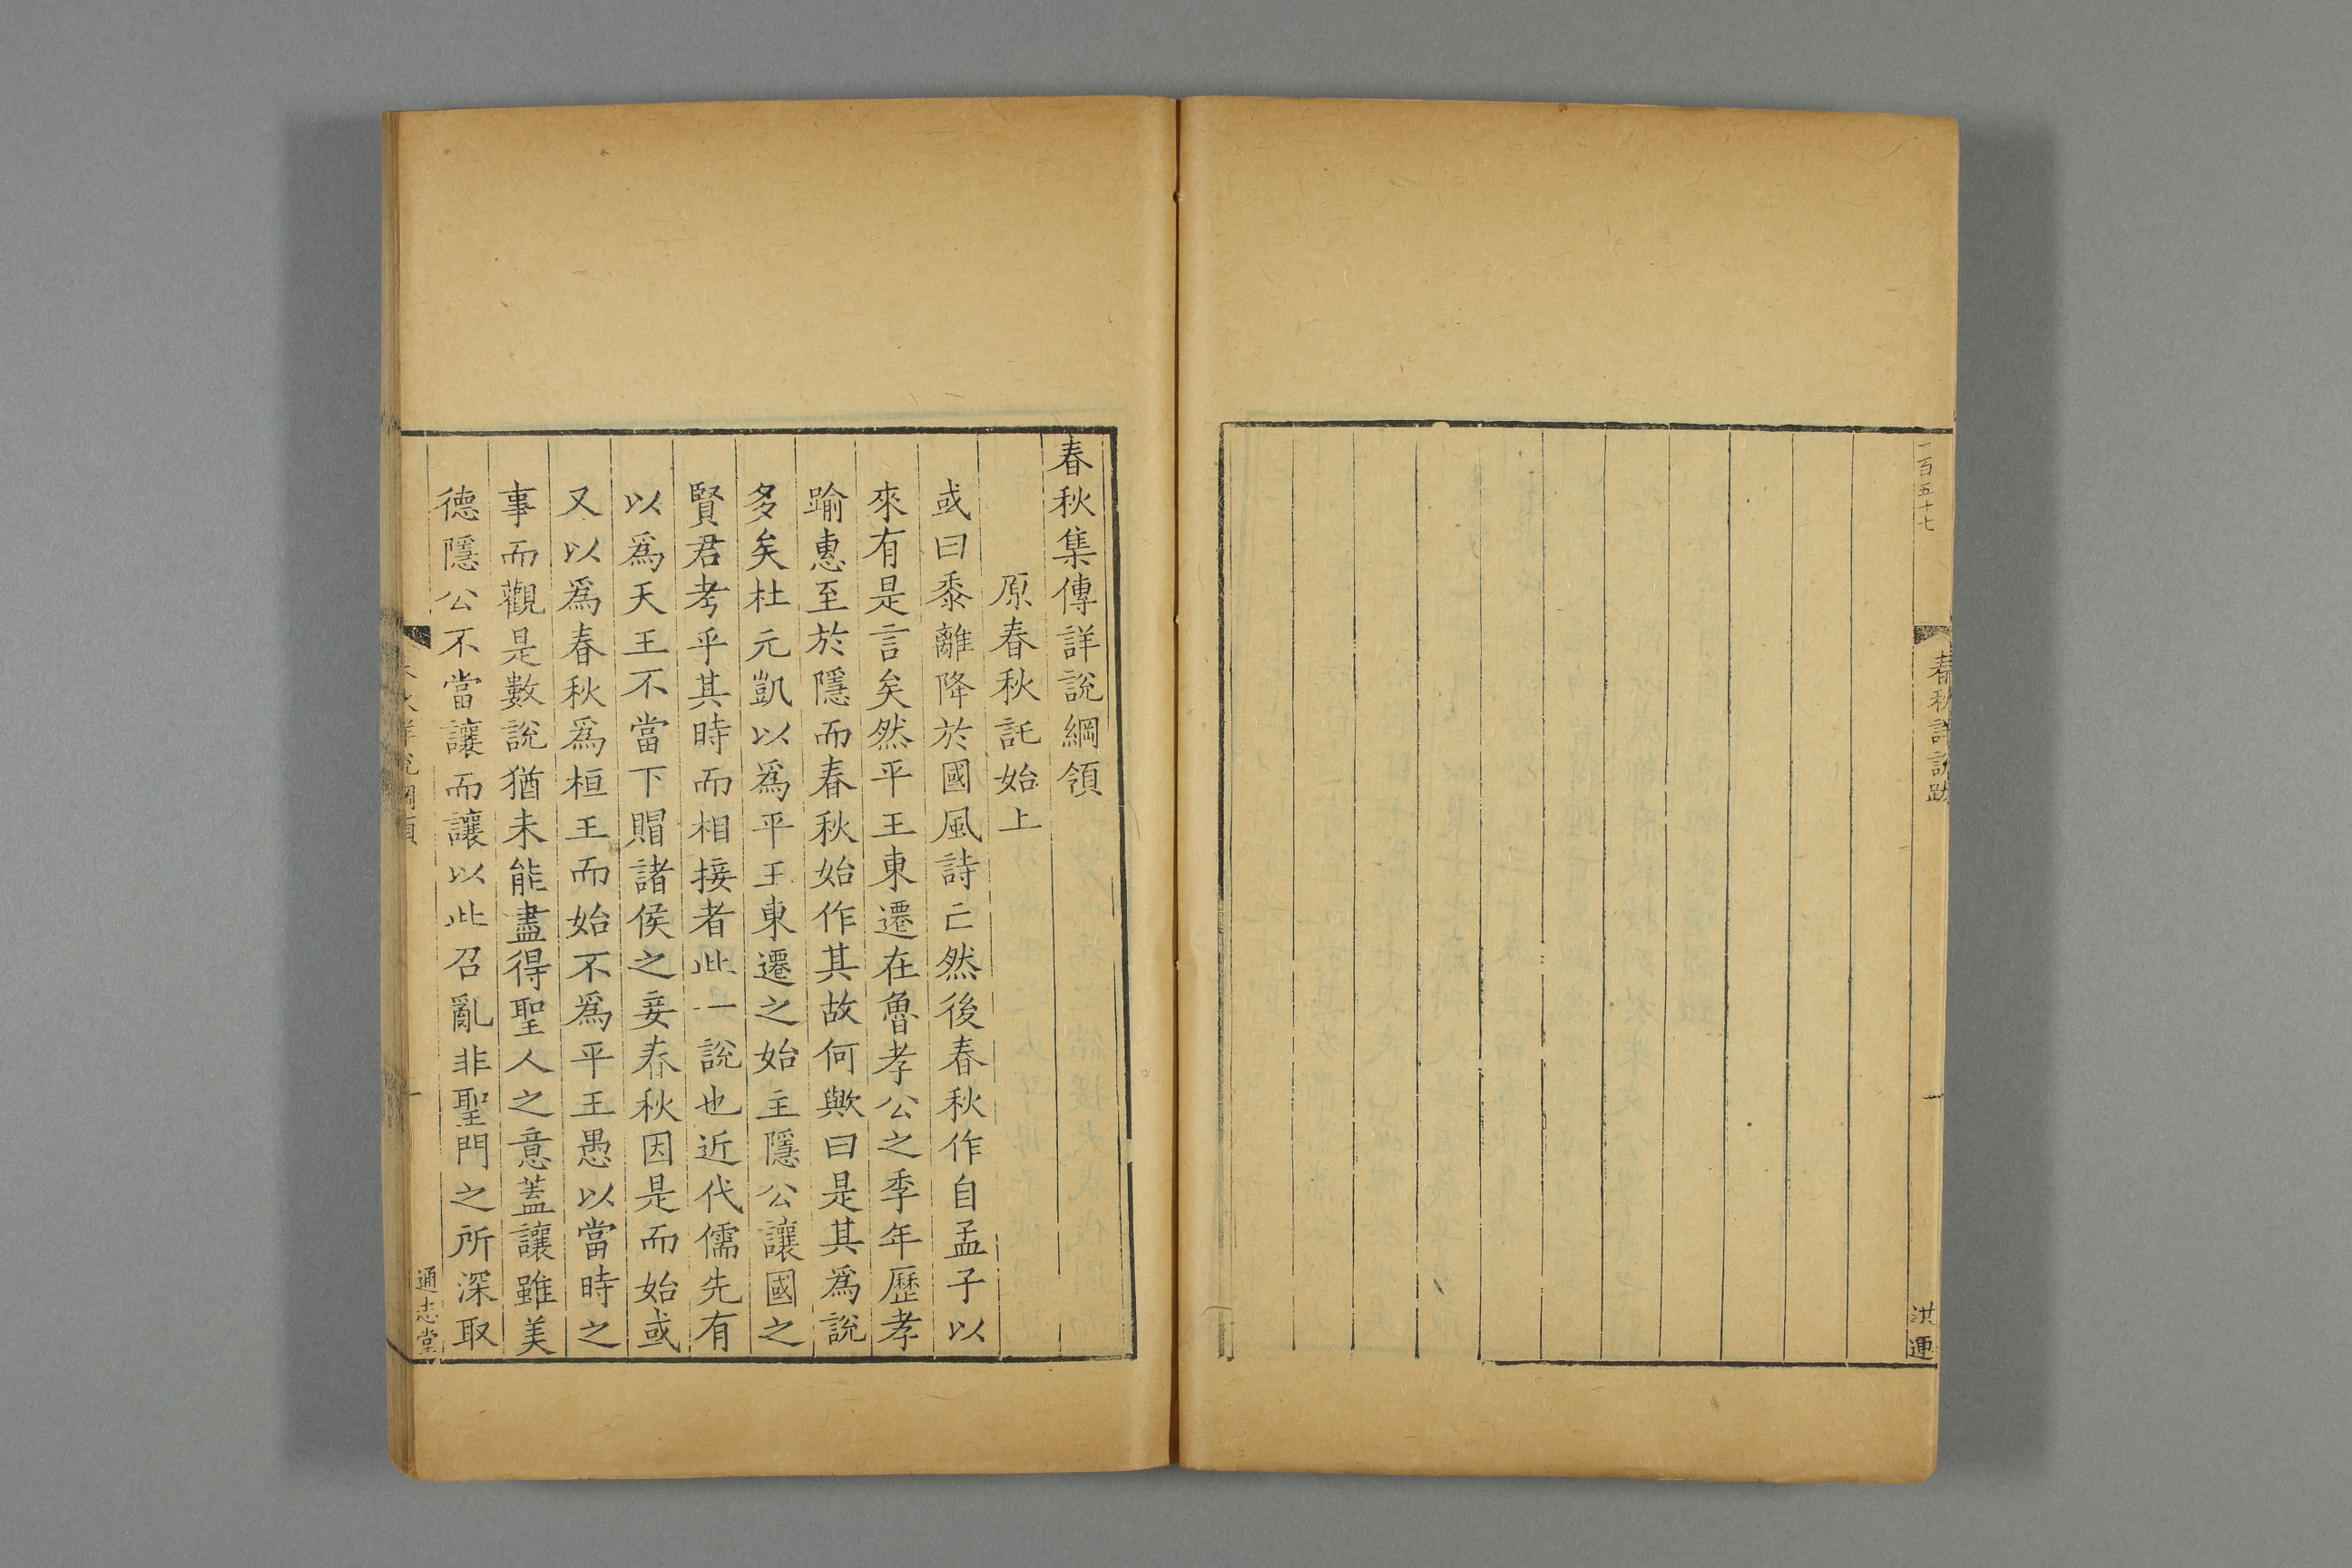 一百五十七
春秋詳說跋
一
洪運
春秋集傳詳說綱領
原春秋託始上
或曰黍離降於國風詩亡然後春秋作自孟子以
來有是言矣然平王東遷在魯孝公之季年歷孝
踰惠至於隱而春秋始作其故何歟曰是其爲說
多矣杜元凱以爲平王東遷之始主隱公讓國之
賢君考乎其時而相接者此一說也近代儒先有
以爲天王不當下賵諸侯之妾春秋因是而始或
又以爲春秋爲桓王而始不爲平王愚以當時之
事而觀是數說猶未能盡得聖人之意蓋讓雖美
德隱公不當讓而讓以此召亂非聖門之所深取
一
通志堂